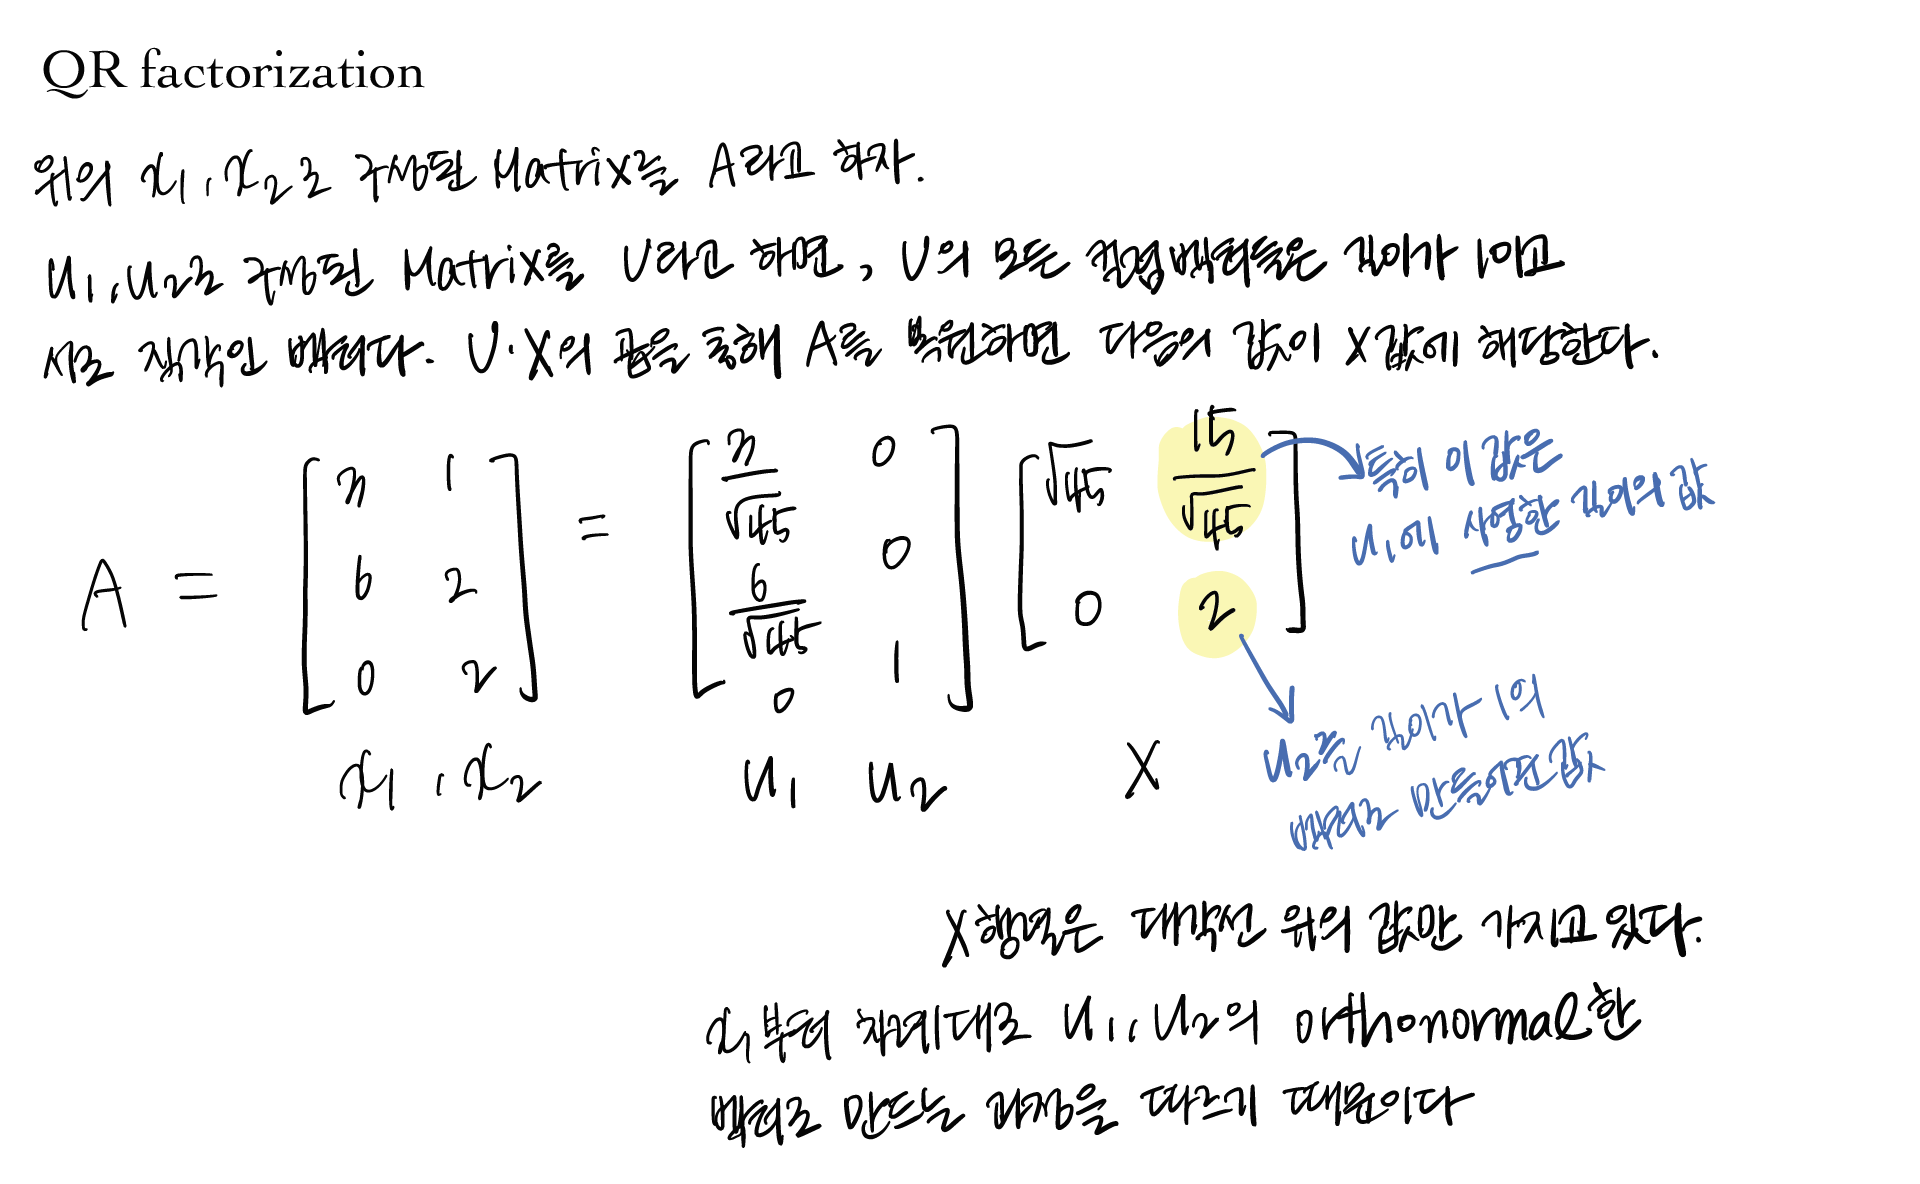 QR factorization
위의 x₁, x₂로 구성된 Matrix를 A라고 하자.
u₁, u₂로 구성된 Matrix를 U라고 하면, U의 모든 컬럼벡터들은 길이가 1이고
서로 직각인 벡터다. U·X의 곱을 통해 A를 복원하면 다음의 값이 X값에 해당한다.
A = [3 1; 6 2; 0 2] = [3/√45 0; 6/√45 0; 0 1] [√45 15/√45; 0 2]
특히 이 값은
u₁에 사영한 길이의 값
x₁, x₂ u₁ u₂ X
u₂를 길이가 1의
벡터로 만들어면 값
X행렬은 대각선 위의 값만 가지고 있다.
x₁부터 차례대로 u₁, u₂의 orthonormal한
벡터로 만드는 과정을 따르기 때문이다